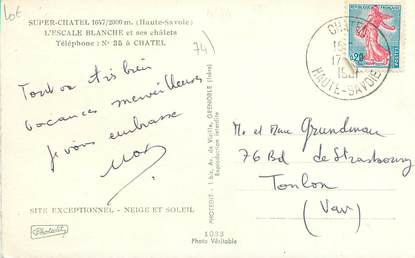 lot
74)
SUPER-CHATEL 1647/2000 m. (Haute-Savoie)
L'ESCALE BLANCHE et ses châlets
Téléphone : N° 35 à CHATEL
Tout va très bien
vacances merveilleuses
je vous embrasse
SITE EXCEPTIONNEL - NEIGE ET SOLEIL
Photedit
PHOTEDIT - 1 bis, Av. de Vizille, GRENOBLE (Isère)
Reproduction interdite
1033
Photo Véritable
CHATEL
17
HAUTE-SAVOIE
0,20
POSTES
M. et Mme Grundman
76 Bd de Strasbourg
Toulon
(Var)